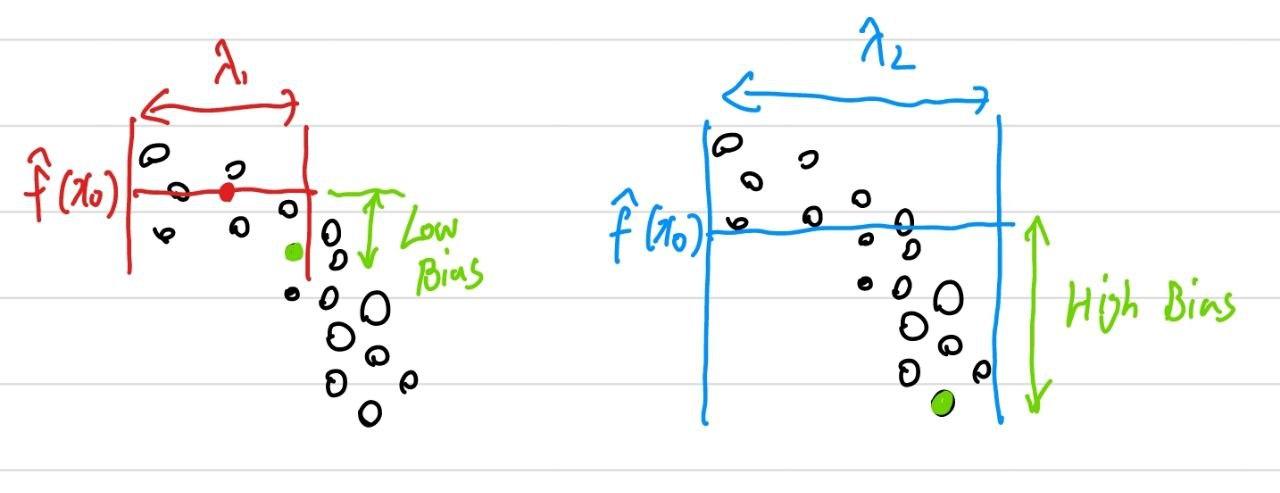 λ₁
f̂(x₀)
Low
Bias
λ₂
f̂(x₀)
High Bias